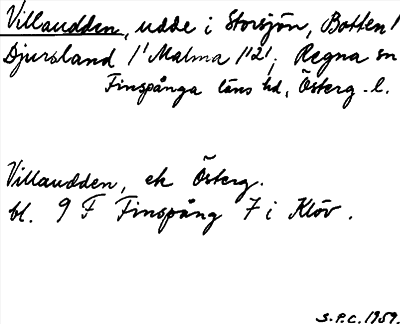 Villaudden, udde i Storsjön, Botten 1
Djursland 1/1 Malma 1/2 1, Regna sn
Finspånga läns hd, Österg. l.
Villaudden, ek Österg.
bl. 9 F Finspång 7 i Klöv.
S.P.C. 1959.